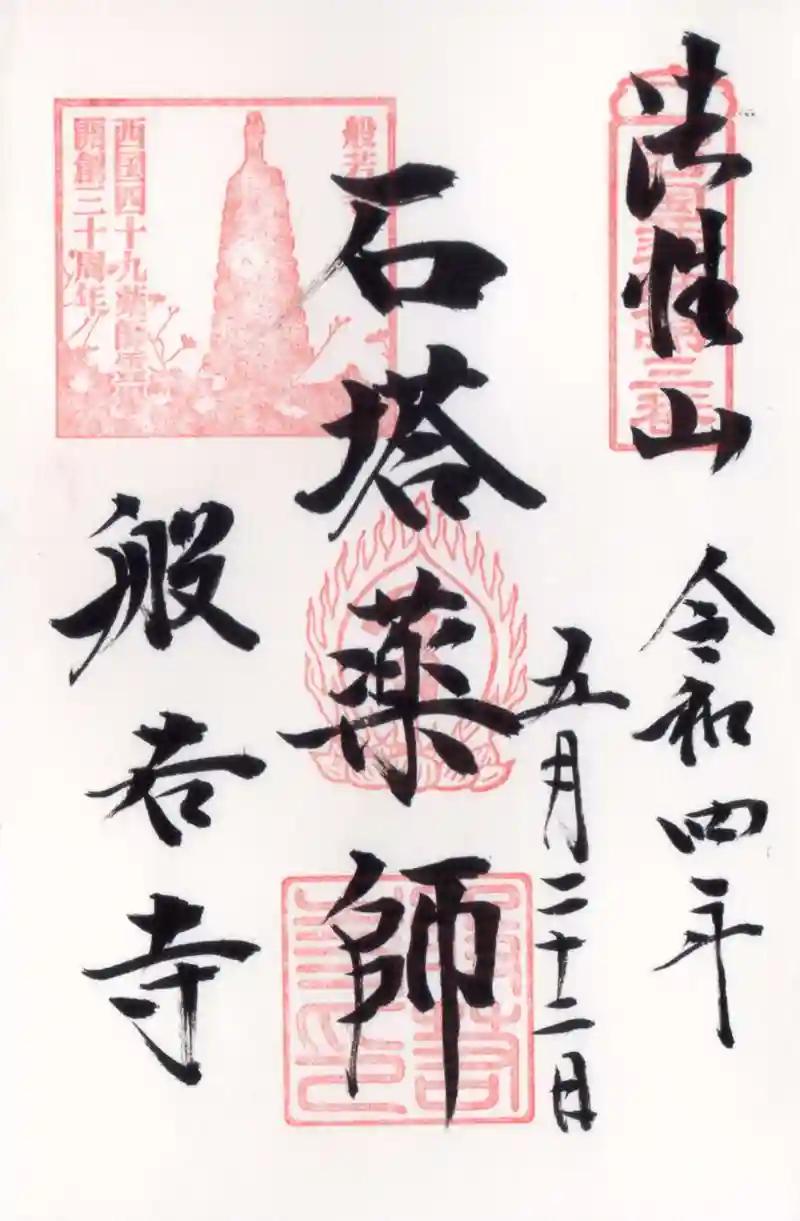 法性山
令和四年
五月二十二日
石塔薬師
般若寺
般若
西国四十九薬師霊場
開創三十周年